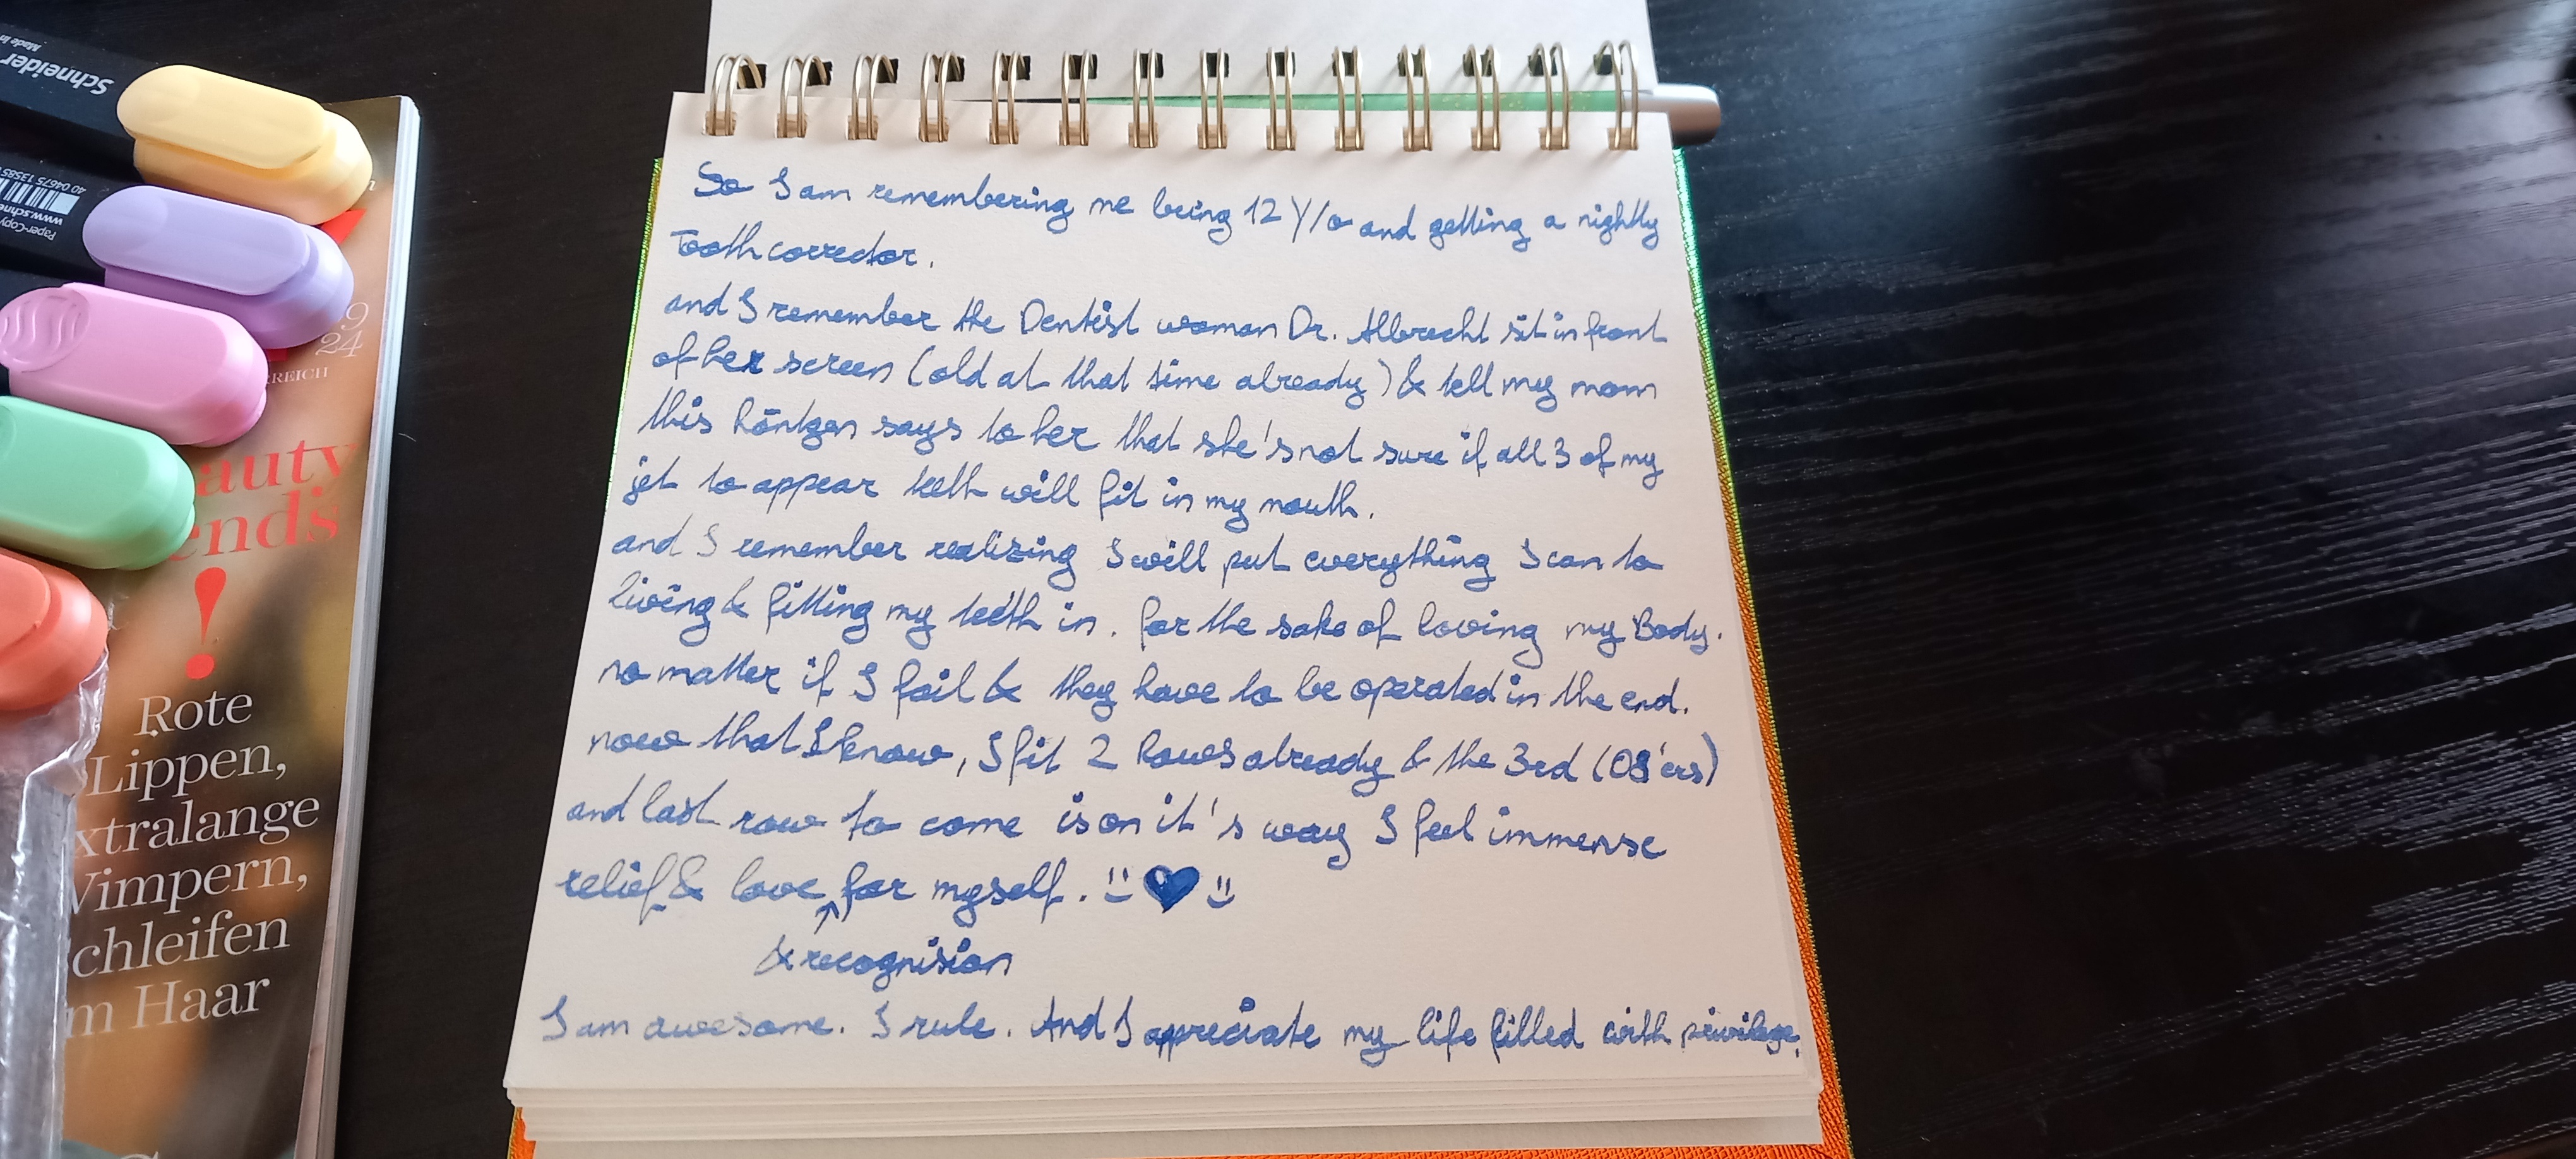 Schneider
Made in
40 04675 13585
www.schne
Paper-Copy
9
24
RREICH
auty
ends
!
Rote
Lippen,
xtralange
Wimpern,
chleifen
m Haar
So I am remembering me being 12 Y/o and getting a nightly
Tooth corrector.
and I remember the Dentist woman Dr. Albrecht sit in front
of her screen (old at that time already) & tell my mom
this Röntgen says to her that she's not sure if all 3 of my
jet to appear teeth will fit in my mouth.
and I remember realizing I will put everything I can to
living & fitting my teeth in. for the sake of loving my Body.
no matter if I fail & they have to be operated in the end.
now that I know, I fit 2 rows already & the 3rd (08'ers)
and last row to come is on it's way I feel immense
relief & love for myself.
& recognision
I am awesome. I rule. And I appreciate my life filled with privilege.